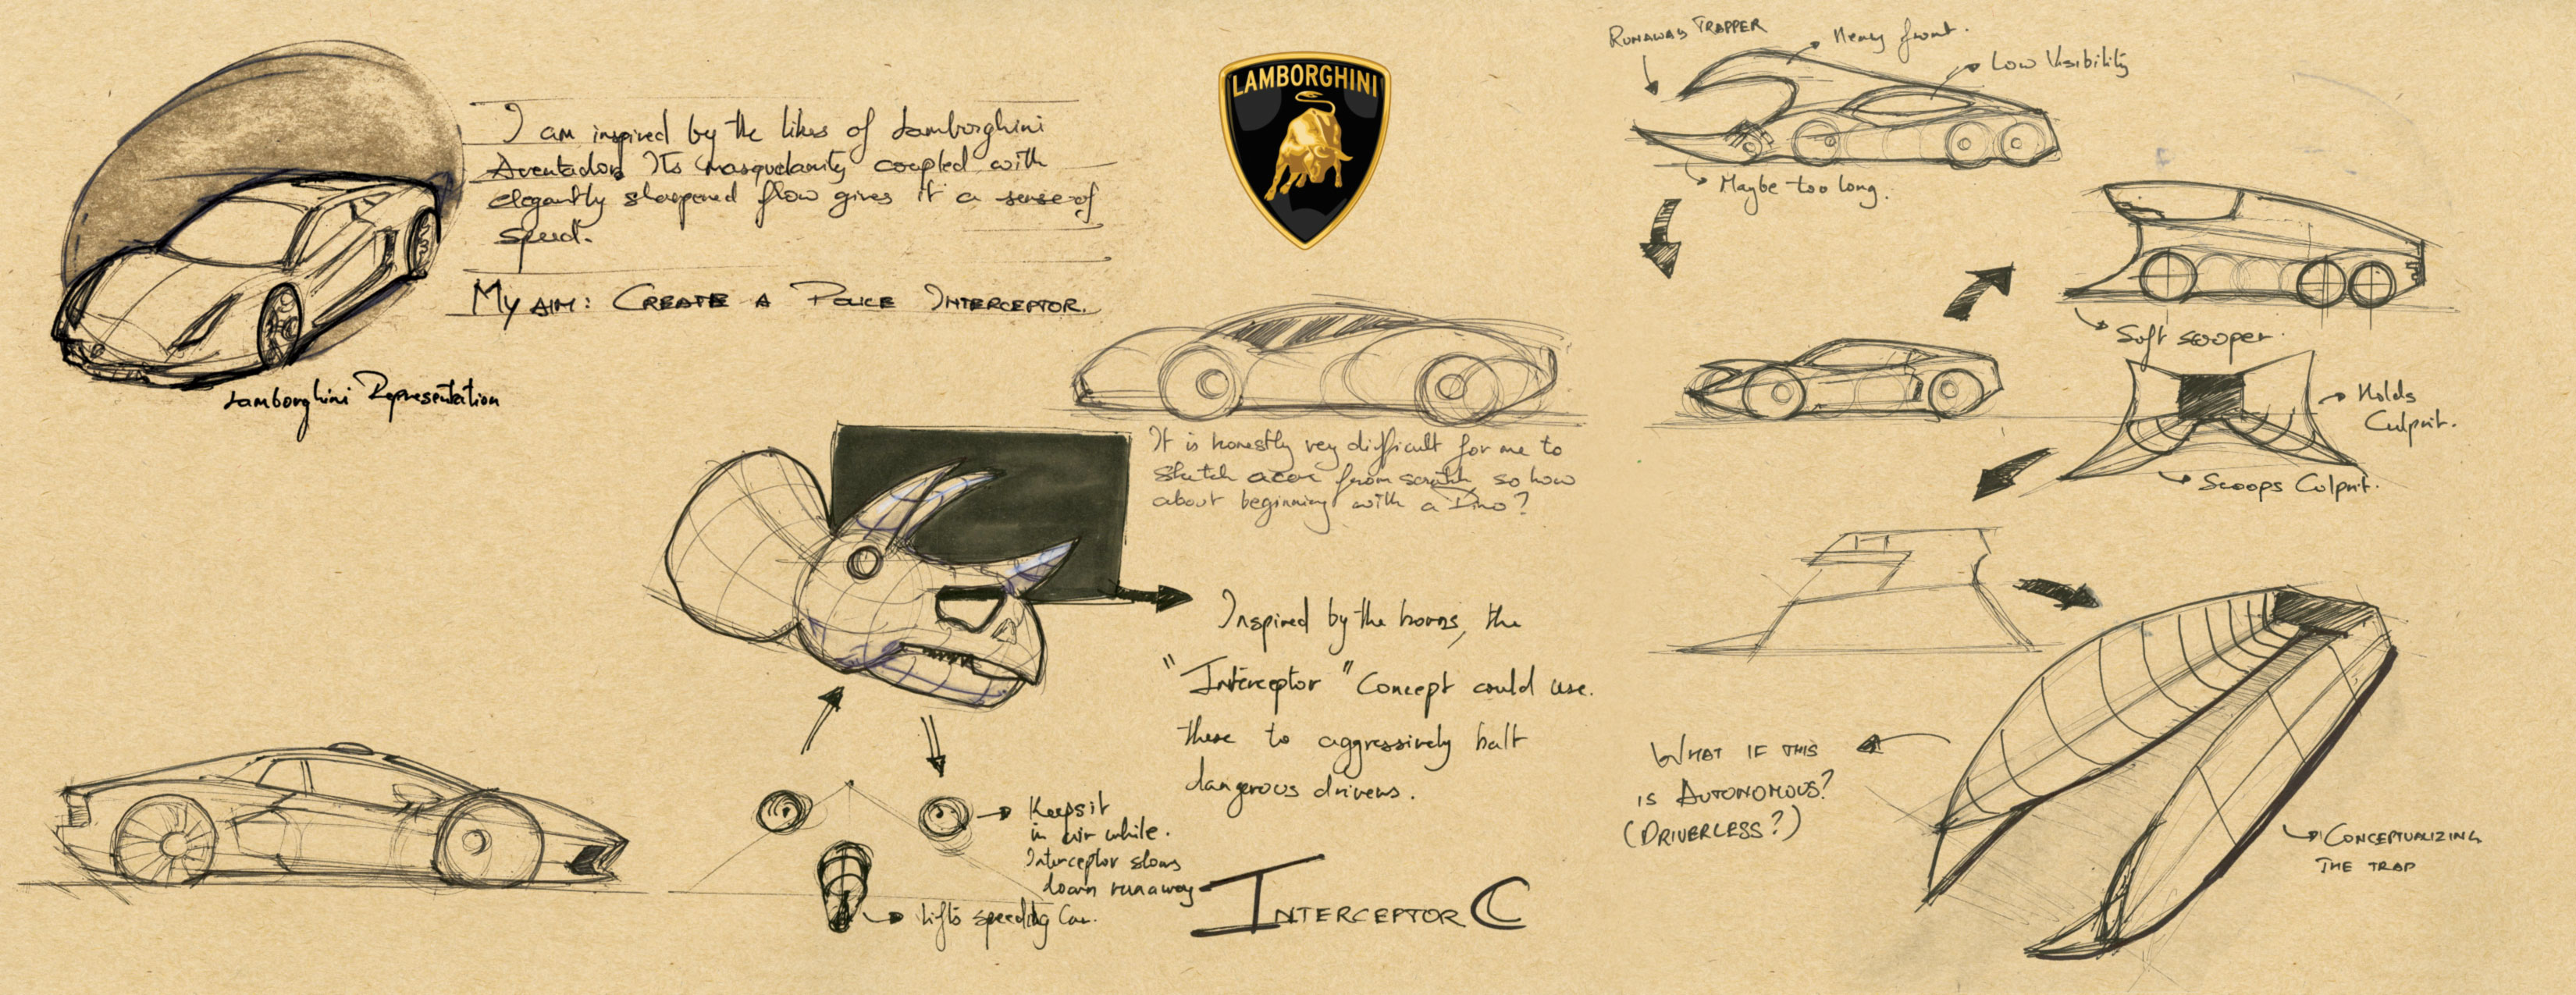 I am inspired by the likes of Lamborghini
Aventador. Its masquelanity coupled with
elegantly sharpened flow gives it a sense of
speed.
MY AIM: CREATE A POLICE INTERCEPTOR.
Lamborghini Representation
LAMBORGHINI
It is honestly very difficult for me to
sketch a car from scratch so how
about beginning with a Dino?
Inspired by the horns, the
"Interceptor" Concept could use
these to aggressively halt
dangerous drivers.
Keeps it
in air while
Interceptor slows
down runaway
Lifts speeding Car.
INTERCEPTOR C
RUNAWAY TRAPPER
Heavy front.
Low Visibility
Maybe too long.
Soft scooper.
Holds
Culprit.
Scoops Culprit.
WHAT IF THIS
IS AUTONOMOUS?
(DRIVERLESS?)
CONCEPTUALIZING
THE TRAP